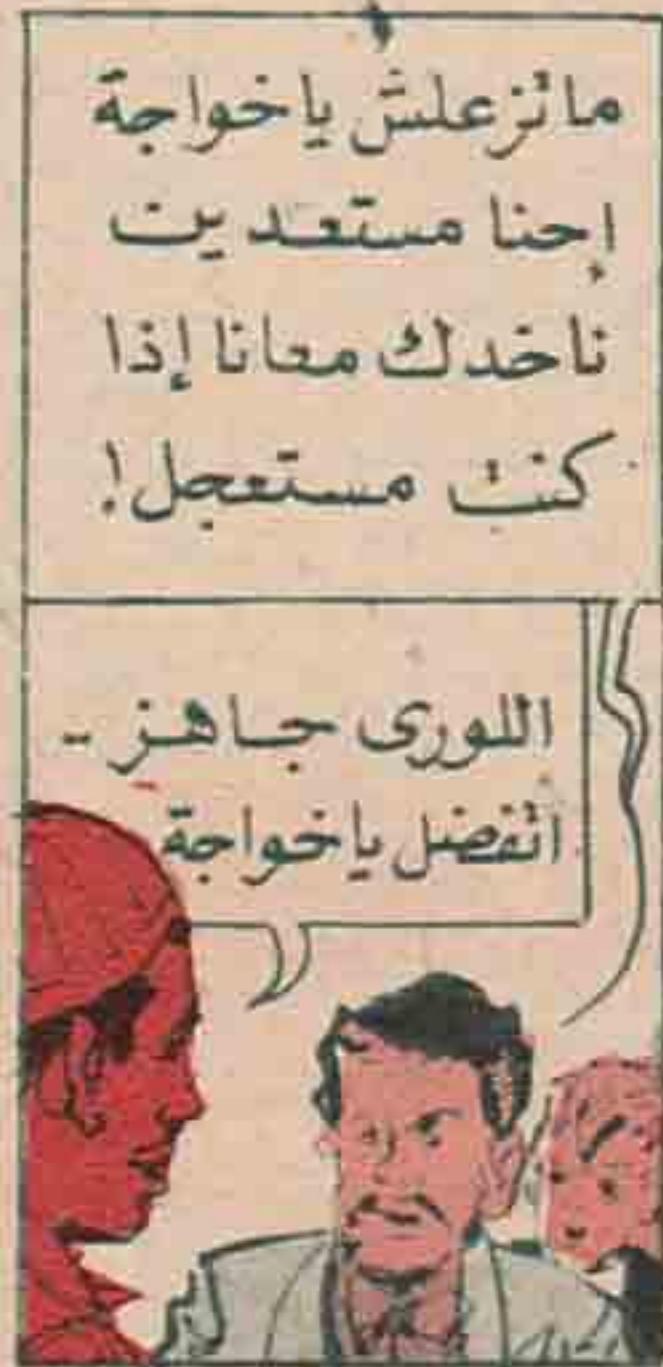 ماتزعلش ياخواجة
إحنا مستعدين
ناخدك معانا إذا
كنت مستعجل!
اللورى جاهز -
اتفضل ياخواجة